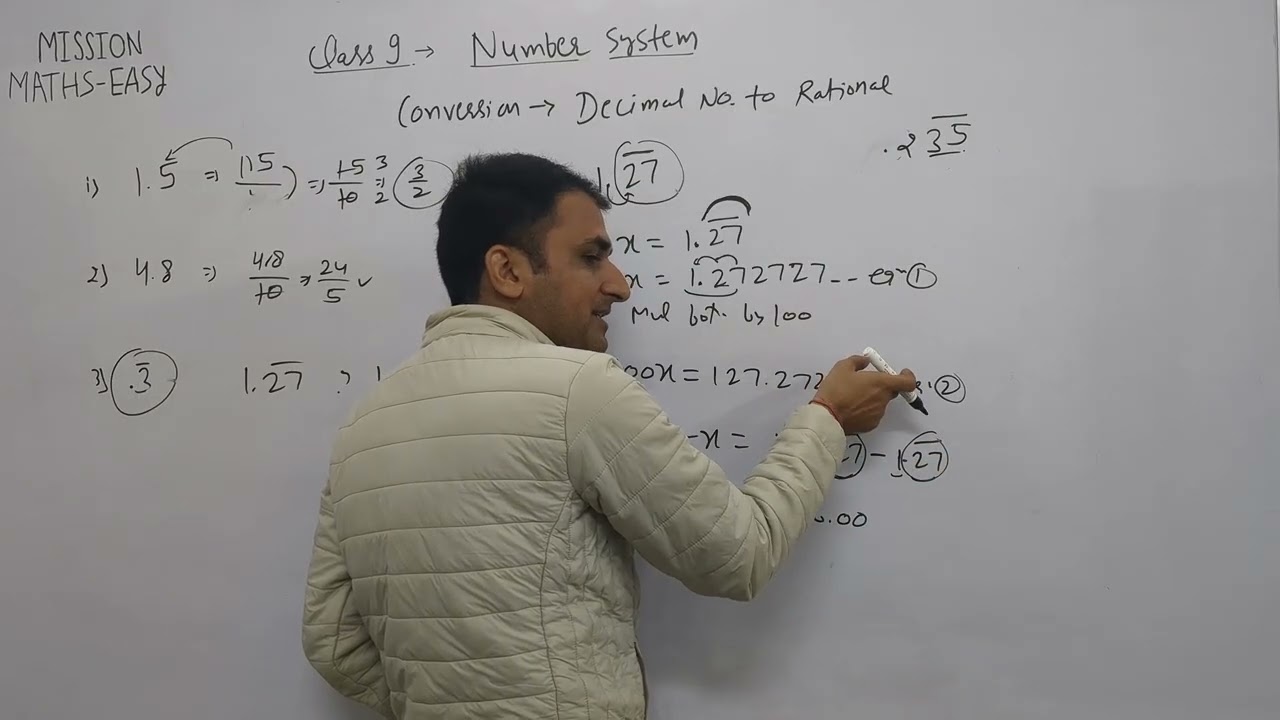 MISSION
MATHS-EASY
Class 9 → Number System
Conversion → Decimal No. to Rational
.2\overline{35}
1) 1.5 ⇒ ⇒ 15/10 3/2 ⇒ 3/2
2) 4.8 ⇒ 48/10 ⇒ 24/5 ✓
3) .\overline{3} 1.\overline{27} ?
1.\overline{27}
x = 1.\overline{27}
x = 1.272727-- eqn ①
Mul both by 100
00x = 127.272 ②
-x = 7 - 1.\overline{27}
.00